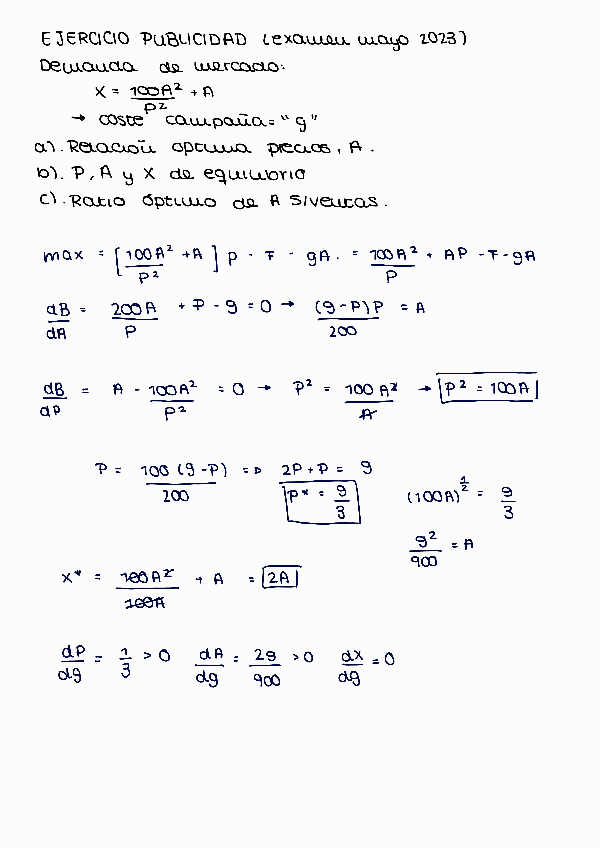 EJERCICIO PUBLICIDAD (examen mayo 2023)
Demanda de mercado:
X = 100A² + A
P²
→ coste campaña = "g"
a). Relación óptima precios, A.
b). P, A y X de equilibrio
c). Ratio óptimo de A s/ventas.
max = [100A²/P² + A] P - F - gA. = 100A²/P + AP - F - gA
dB/dA = 200A/P + P - g = 0 → (g-P)P/200 = A
dB/dP = A - 100A²/P² = 0 → P² = 100A²/A → P² = 100A
P = 100(g-P)/200 => 2P + P = g
P* = g/3
(100A)^1/2 = g/3
g²/900 = A
X* = 100A²/100A + A = 2A
dP/dg = 1/3 > 0 dA/dg = 2g/900 > 0 dX/dg = 0